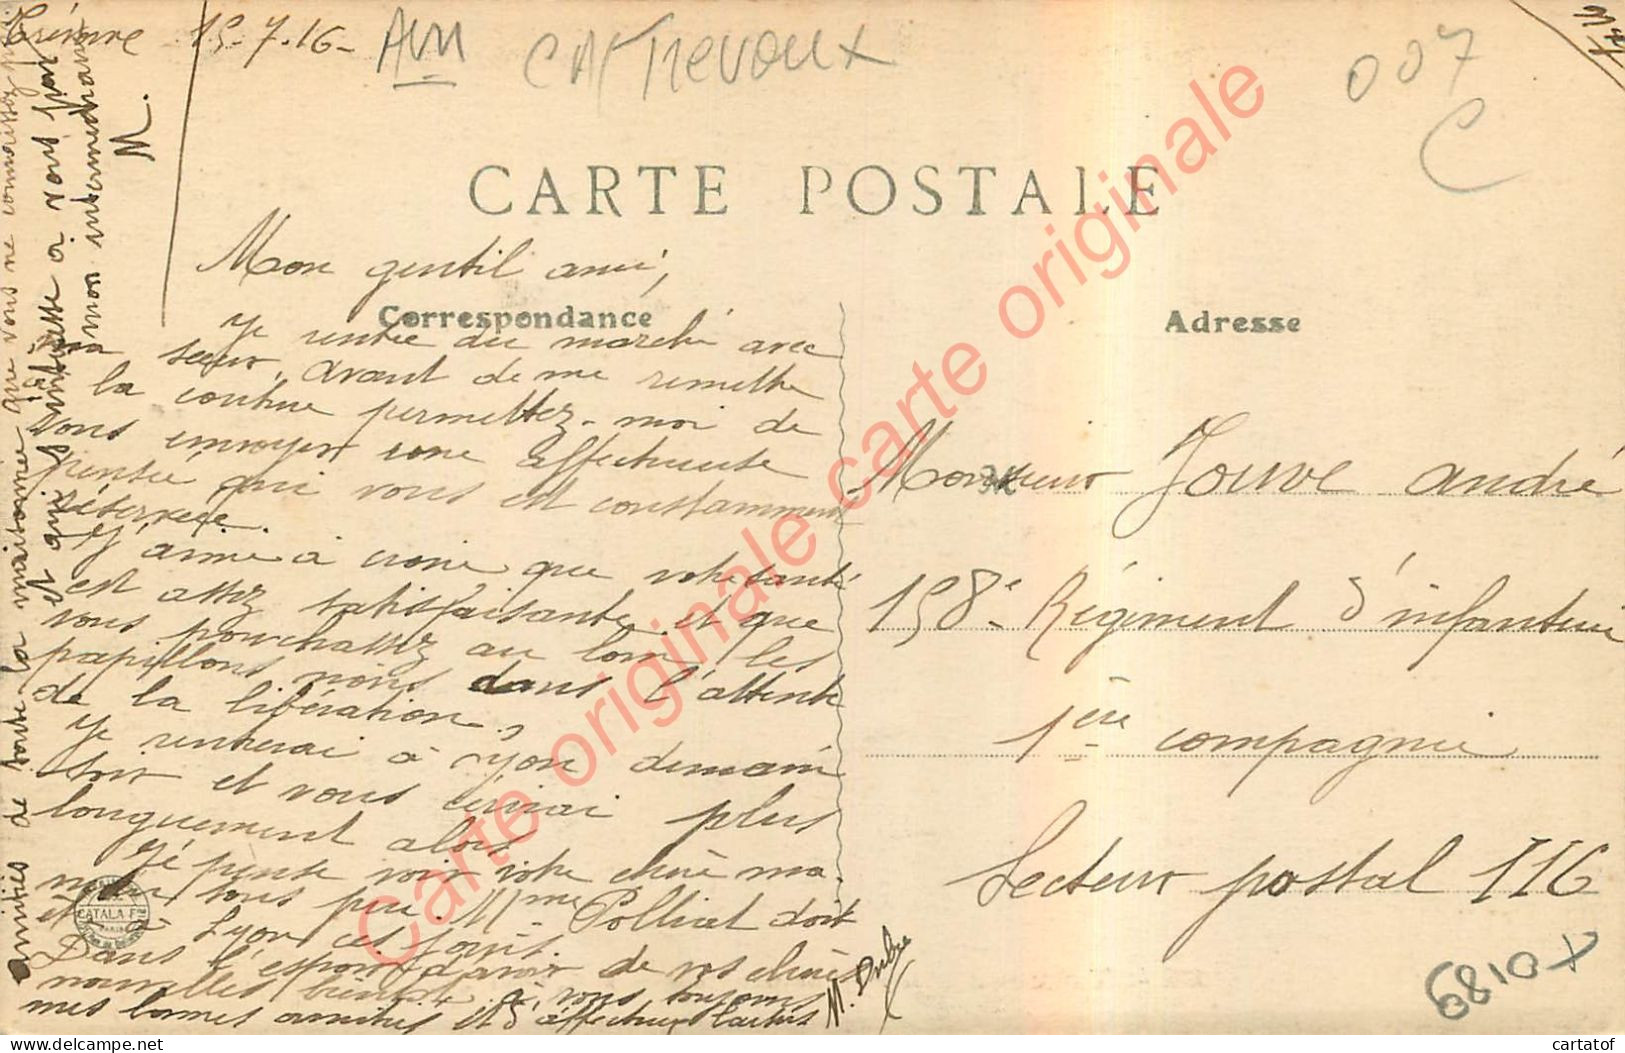 15-7-16-
CARTE POSTALE
007
C
Mon gentil ami,
Correspondance
Je rentre du marché avec
ma sœur. Avant de me remettre
à la couture permettez-moi de
vous envoyer une affectueuse
pensée qui vous est constamment
réservée.
J'aime à croire que votre santé
est assez satisfaisante et que
vous pourchassez au loin les
papillons noirs dans l'attente
de la libération.
Je rentrerai à Lyon demain
soir et vous écrirai plus
longuement alors.
Je pense voir votre chère ma-
man sous peu. Mme Polliat doit
être à Lyon ces jours.
Dans l'espoir d'avoir de vos chères
nouvelles bientôt à vous toujours
mes bonnes amitiés et d'affectueux baisers
M. Dubre
amitiés de toute la maisonnée que vous ne connaissez pas
et qui s'intéresse à vous par
mon intermédiaire
M.
CATALA Fres
PARIS
Adresse
Monsieur Jouve André
158e Régiment d'infanterie
1ère compagnie
Secteur postal 116
6810x
Carte originale carte originale
CARTATOF
delcampe.net